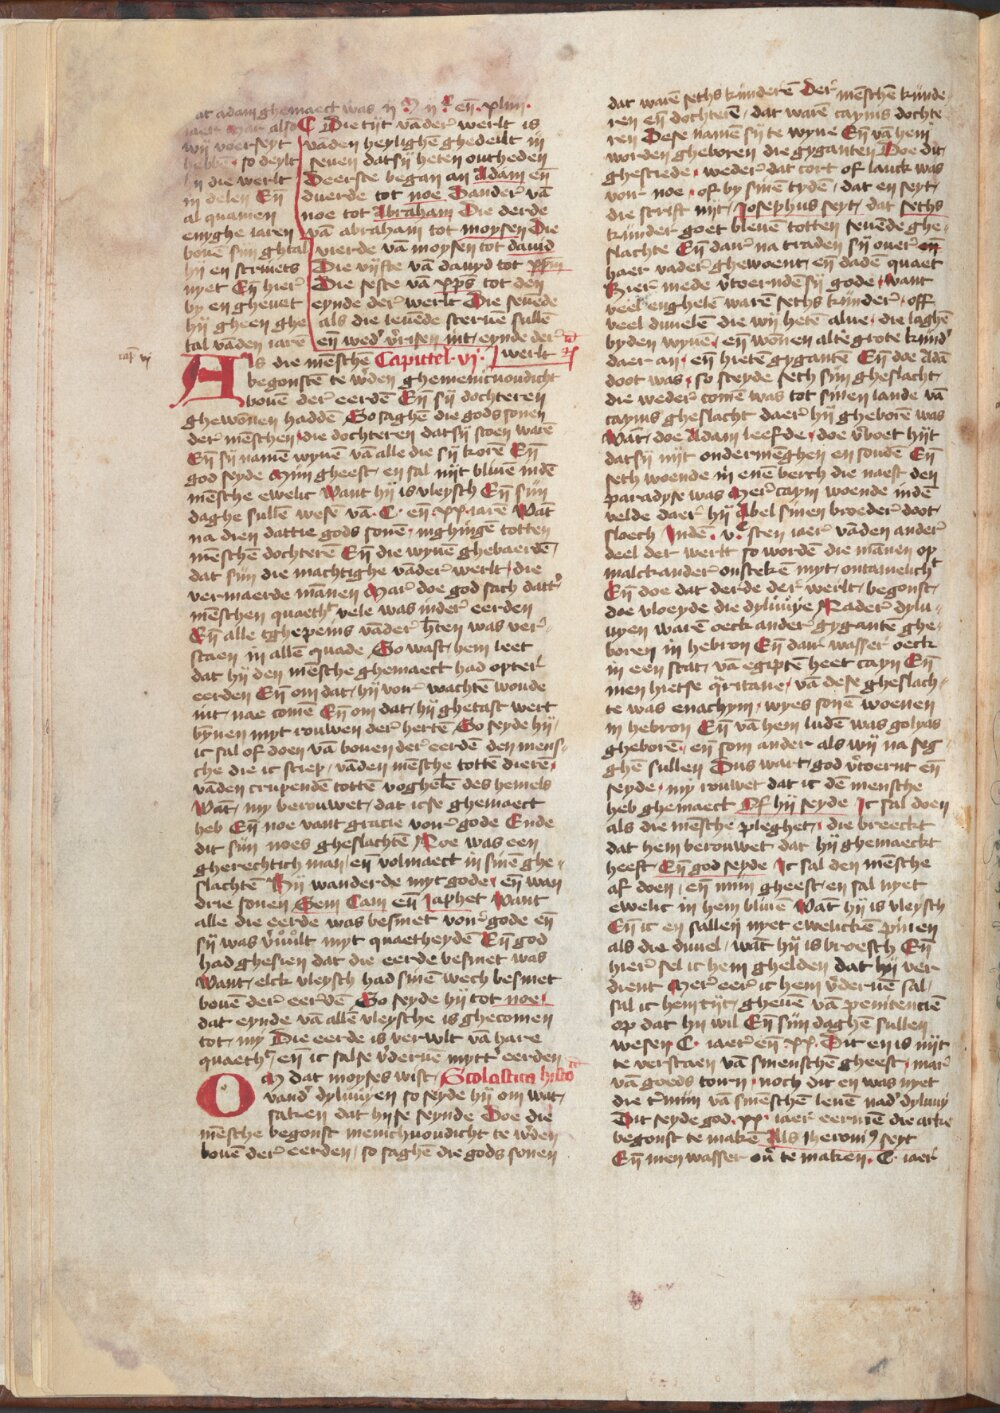 at adam ghemaect was ij M ij C eñ xliiij.
iaer Mar also
wij voerseyt
hebbē. so deylt
in die werlt
in delen Eñ
al quamen
enyghe iaren
bouē sijn ghtal
hij en scriuets
nyet Eñ hier
by en gheuet
hij gheen ghe
tal vādē iarē
Die tijt vāder werlt is
vādē heylighē ghedeilt in
seuen datsij heten outheden
Deerste began an Adam en
duerde tot noe Dander vā
noe tot Abraham Die derde
vā abraham tot moysen Die
vierde vā moysen tot dauid
Die vijfte vā dauyd tot xpm
Die seste vā xps tot den
eynde der werlt Die seuēde
als die leuēde steruē sullē
eñ wed' v'risen int eynde der
werlt
cap vj
Als die mēschē Capittel. vj.
begonstē te w'den ghemenicuoudicht
bouē der eerdē Eñ sij dochteren
ghewōnen haddē So saghē die gods sonen
der mēschen die dochteren datsij scoen warē
Eñ sij namē wyuē vā alle die sij korē Eñ
god seyde Mijn gheest en sal nijt bliuē indē
mēsche ewelic Want hij is vleysch Eñ sijn
daghe sullē wesē vā. C. en xx. iarē Wāt
na dien dattie gods sonē inghingē totten
mēschē dochterē Eñ die wyuē ghebaerdē
dat sijn die machtighe vāder werlt die
vermaerde mānen Mar doe god sach datt'
mēschen quaeth' vele was inder eerden
Eñ alle tghepeins vāder h'ten was ver
staen in allē quade So wast hem leet
dat hij den mēsche ghemaect had opter
eerden Eñ om dat hij voir wachtē woude
int nae comē Eñ om dat hij ghetast wert
bynen myt rouwen der hertē So seyde hij
ic sal of doen vā bouen der eerdē den mens
che die ic sciep vāden mēsche tottē dierē
vāden crupendē tottē voghelē des hemels
Wāt my berouwet dat icse ghemaect
heb Eñ noe vant gracie voir gode Ende
dit sijn noes gheslachtē Noe was een
gherechtich man eñ volmaect in sinē ghe
slachtē Hij wanderde myt gode eñ wan
drie sonen Sem Cam eñ Iaphet Want
alle die eerde was besmet voir gode eñ
sij was v'wlt myt quaetheydē Eñ god
had ghesien dat die eerde besmet was
Want elck vleysch had sinē wech besmet
bouē der eerdē So seyde hij tot noe
dat eynde vā allē vleysche is ghecomen
tot my Die eerde is verwlt vā hare
quaeth' eñ ic salse v'deruē mytt' eerden
Om dat moyses wist Scolastica histo
vand' dyluuyen so seyde hij om wat
saken dat hijse seynde Doe die
mēsche begonst menichuoudicht te w'den
bouē der eerden so saghē die gods sonen
dat warē seths kinderē Der mēschē kinde
ren eñ dochterē dat warē cayms dochte
ren Dese namē sij te wyue Eñ vā hem
worden gheboren die gyganten Doe dit
ghesciede weder dat cort of lanck was
voir noe of by sinē tydē dat en seyt
die scrift nijt Josephus seyt dat seths
kinder goet bleuē totten seuēde ghe
slachte Eñ daer na traden sij ouer eñ
haer vader ghewoent eñ dadē quaet
Hier mede v'toerndē sij gode want
veel enghelē warē seths kinder off
veel duuelē die wij hetē alue die laghē
byden wyuē eñ wonen alte grote kind'
daer an eñ hietē gygantē Eñ doe Adā
doot was so sceyde seth sijn gheslacht
die weder comē was tot sinen lande vā
cayms gheslacht daer hij gheborē was
Wāt doe Adam leefde doe v'boet hijt
datsij nijt ondermēghen en soudē Eñ
seth woende in enē berch die naest den
paradyse was Mer caym woende indē
velde daer hij Abel sinen broeder doot
sloech Indē. v.C sten iaer vāden ander
deel der werlt so wordē die mānen op
malckander onstekē myt ontamelich'
Eñ doe dat derde der werlt begonst
doe vloeyde die dyluuye Nader dylu
uyen warē oeck ander gygante ghe
boren in hebron Eñ daer wasser oeck
in een stat vā egiptē heet cayn Eñ
men hietse tritane vā dese gheslach
te was enachym wyes sonē woenen
in hebron Eñ vā hem ludē was golyas
gheborē eñ som ander als wij na seg
ghē sullen Dus wart god v'toernt eñ
seyde my rouwet dat ic dē mensche
heb ghemaect Of hij seyde Ic sal doen
als die mēsche pleghet die breeckt
dat hem berouwet dat hij ghemaeckt
heeft Eñ god seyde Ic sal den mēsche
af doen eñ mijn gheest en sal nyet
ewelic in hem bliuē Wāt hij is vleysch
Eñ ic en sallen nyet ewelickē pinen
als die duuel wāt hij is broesch Eñ
hier sel ic hem ghelden dat hij ver
dient Mer eer ic hem v'deruē sal
sal ic hem tijt gheuē vā penitenciē
op dat hij wil Eñ sijn daghē sullen
wesen C. iaer eñ xx. Dit en is nijt
te verstaen vā smenschē gheest mar
vā goeds torn noch dit en was nyet
die t'mijn vā smēschē leuē nad' dyluuy
Dit seyde god. xx. iaer eermē die arke
begonst te makē Als Iheronim' seyt
Eñ men wasser ou' te maken. C. iaer